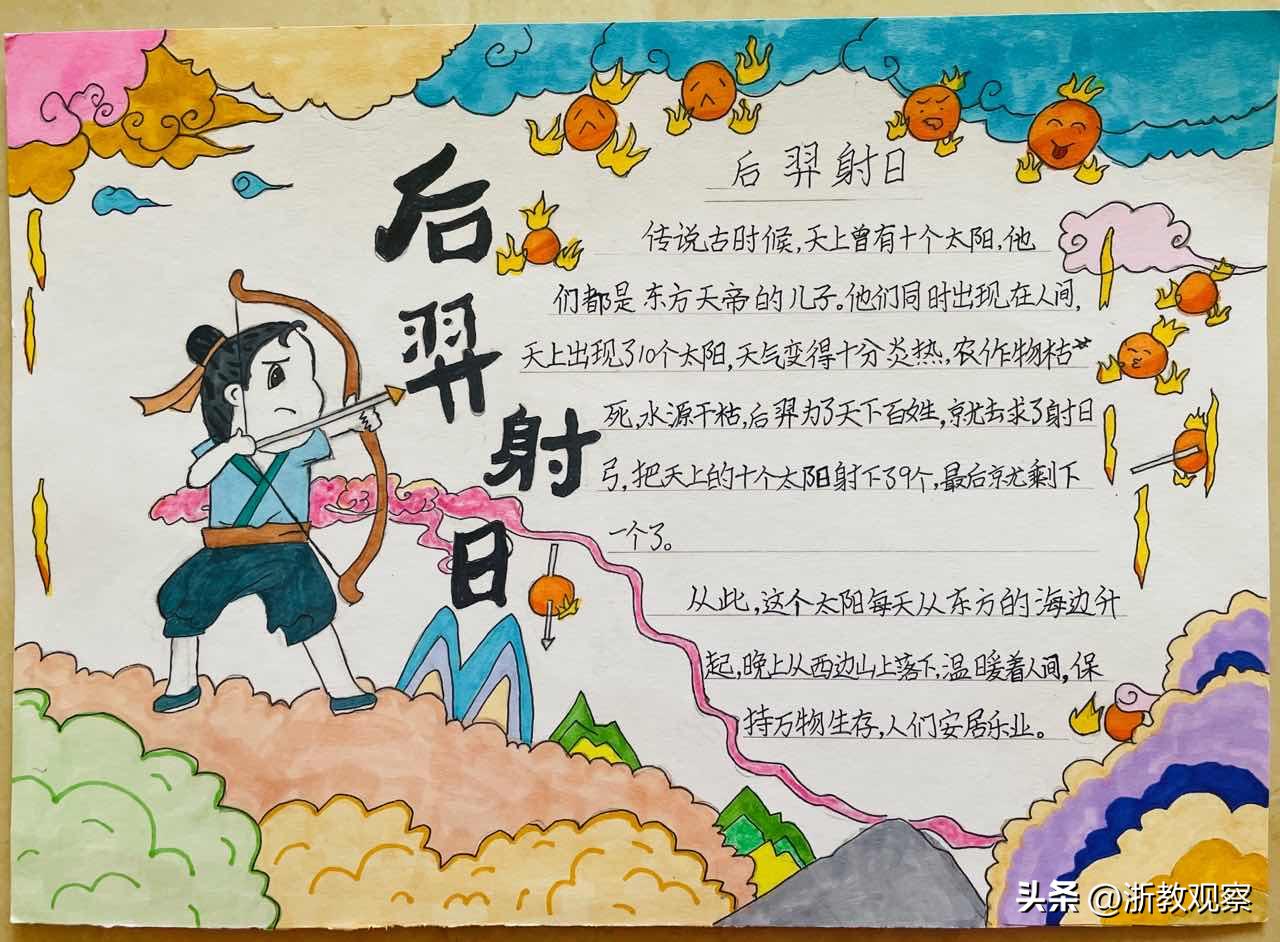 后羿射日
后羿射日
传说古时候,天上曾有十个太阳,他
们都是东方天帝的儿子。他们同时出现在人间,
天上出现了10个太阳,天气变得十分炎热,农作物枯
死,水源干枯,后羿为了天下百姓,就去求了射日
弓,把天上的十个太阳射下了9个,最后就剩下
一个了。
从此,这个太阳每天从东方的海边升
起,晚上从西边山上落下,温暖着人间,保
持万物生存,人们安居乐业。
头条 @浙教观察